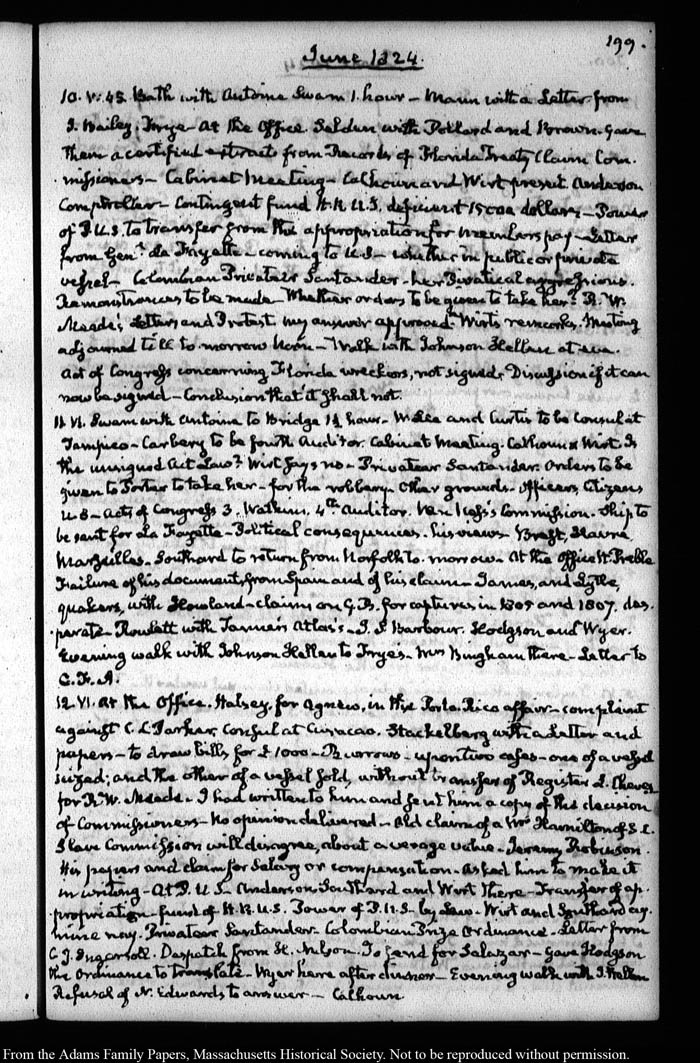 199.
June 1824.
10. V:45 Bath with Antoine Swam 1. hour – Mann with a Letter from
J. Bailey. Frye – At the Office. Selden with Pollard and Brown. Gave
them a certified extract from Records of Florida Treaty Claim Com-
missioners – Cabinet Meeting – Calhoun and Wirt present. Anderson
Comptroller – Contingent fund H.R U.S. deficient 15000 dollars – Power
of P.U.S. to transfer from the appropriation for members pay – Letter
from Genl. La Fayette – coming to U.S – whether in public or private
vessel – Colombian Privateer Santander – her Piratical aggressions.
Remonstrances to be made – Whether orders to be given to take her? R. W.
Meade's Letters and Protest my answer approved Wirt's remarks. Meeting
adjourned till to-morrow Noon – Walk with Johnson Hellen at eve.
Act of Congress concerning Florida wreckers, not signed. Discussion if it can
now be signed – Conclusion that it shall not.
11. VI. Swam with Antoine to Bridge 1½ hour – W. Lee and Curtis to be Consul at
Tampico – Carbery to be fourth Auditor. Cabinet Meeting. Calhoun & Wirt. Is
the unsigned Act Law? Wirt says no – Privateer Santander. Orders to be
given to Porter to take her – for the robbery. Other grounds. Officers, Citizens
U.S – Acts of Congress 3. Watkins, 4th. Auditor. Van Ness's Commission. Ship to
be sent for La Fayette – Political consequences – his views – Brest, Havre
Marseilles – Southard to return from Norfolk to-morrow – At the Office H. Preble
Failure of his documents from Spain and of his claim – James, and Lytle,
quakers, with Howland – claims on G.B. for captures in 1805 and 1807. des-
perate – Rowlett with Tanner's Atlas's – J. S. Barbour. Hodgson and Wyer.
Evening walk with Johnson Hellen to Frye's. Mrs Bingham there – Letter to
C. F. A.
12. VI. At the Office. Halsey, for Agnew, in the Porto Rico affair – complaint
against C. L. Parker, Consul at Curacao. Stackelberg with a Letter and
papers – to draw bills for £ 1000 – Burrows – upon two cases – one of a vessel
seized; and the other of a vessel sold, without transfer of Register L. Cheves
for R. W. Meade – I had written to him and sent him a copy of the decision
of Commissioners – No opinion delivered – Old claim of a Mrs Hamilton of S.C.
Slave Commission will disagree, about average value – Jeremy Robinson.
His papers and claim for Salary or compensation – Asked him to make it
in writing – At P. U S – Anderson Southard and Wirt there – Transfer of ap-
propriation – fund of H. R. U.S. Power of P.U.S – by Law – Wirt and Southard ag.
mine nay. Privateer Santander. Colombian Prize Ordinance – Letter from
C J. Ingersoll. Despatch from H. Nelson. To send for Salazar – Gave Hodgson
the Ordinance to translate – Wyer here after dinner – Evening walk with J. Hellen
Refusal of N. Edwards to answer – Calhoun
From the Adams Family Papers, Massachusetts Historical Society. Not to be reproduced without permission.